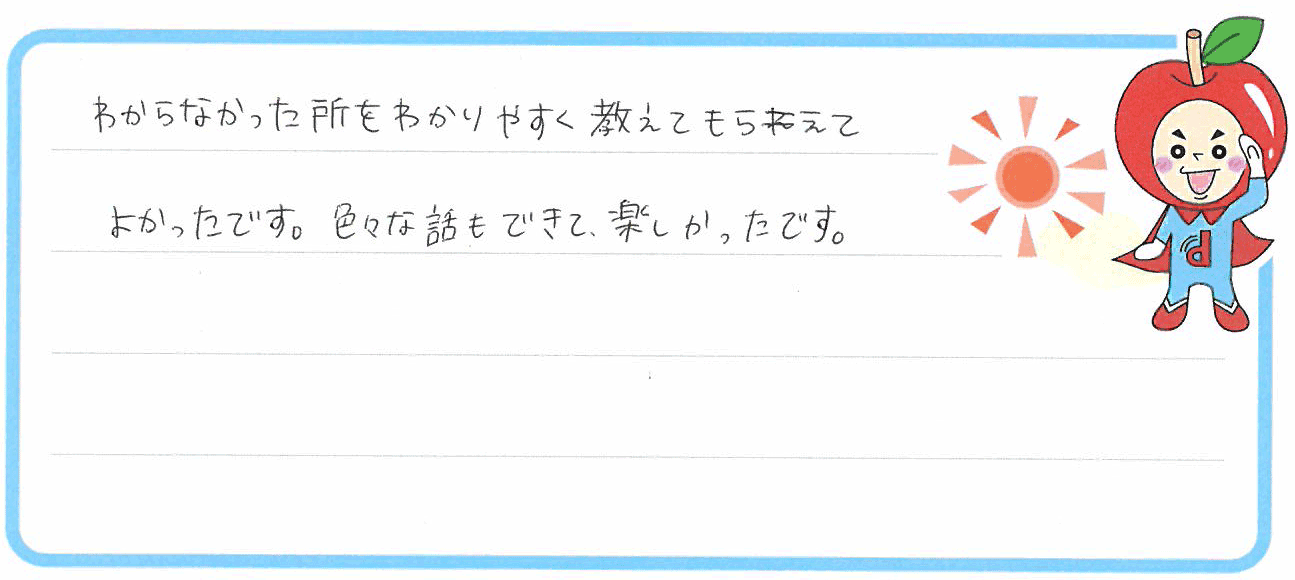 わからなかった所をわかりやすく教えてもらねえて
よかったです。色々な話もできて、楽しかったです。